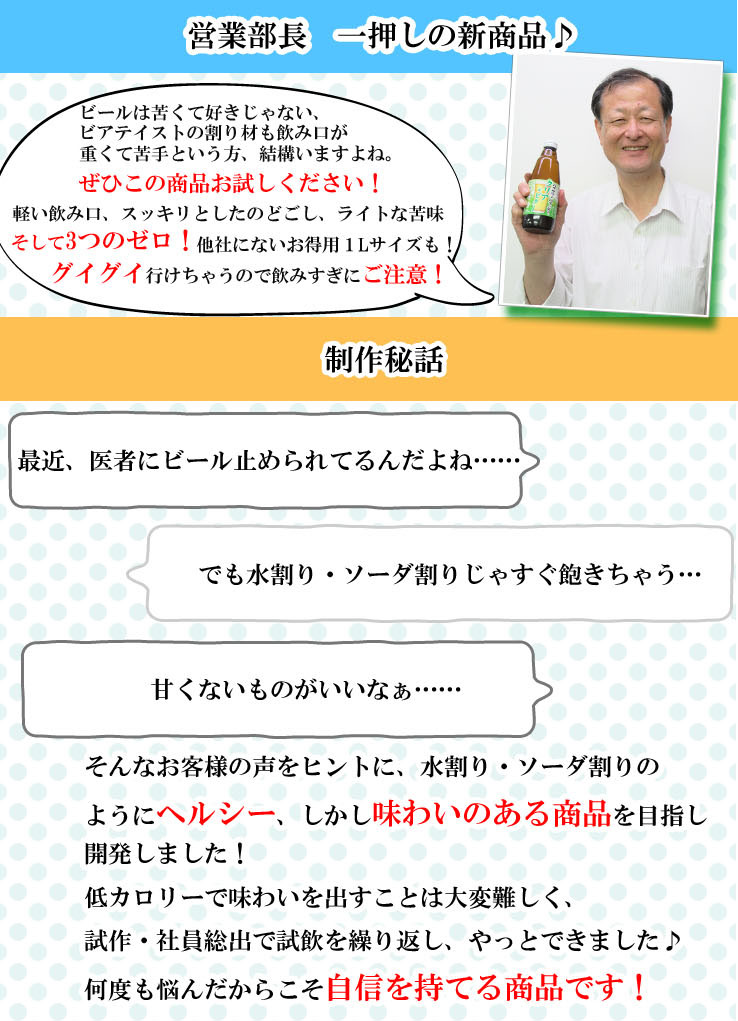 営業部長 一押しの新商品♪
ビールは苦くて好きじゃない、
ビアテイストの割り材も飲み口が
重くて苦手という方、結構いますよね。
ぜひこの商品お試しください！
軽い飲み口、スッキリとしたのどごし、ライトな苦味
そして3つのゼロ！他社にないお得用１Lサイズも！
グイグイ行けちゃうので飲みすぎにご注意！
制作秘話
最近、医者にビール止められてるんだよね……
でも水割り・ソーダ割りじゃすぐ飽きちゃう…
甘くないものがいいなぁ……
そんなお客様の声をヒントに、水割り・ソーダ割りの
ようにヘルシー、しかし味わいのある商品を目指し
開発しました！
低カロリーで味わいを出すことは大変難しく、
試作・社員総出で試飲を繰り返し、やっとできました♪
何度も悩んだからこそ自信を持てる商品です！